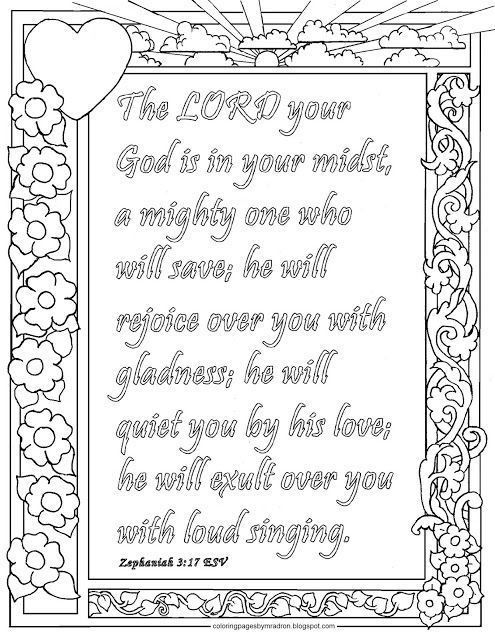 The LORD your
God is in your midst,
a mighty one who
will save; he will
rejoice over you with
gladness; he will
quiet you by his love;
he will exult over you
with loud singing.
Zephaniah 3:17 ESV
coloringpagesbymradron.blogspot.com